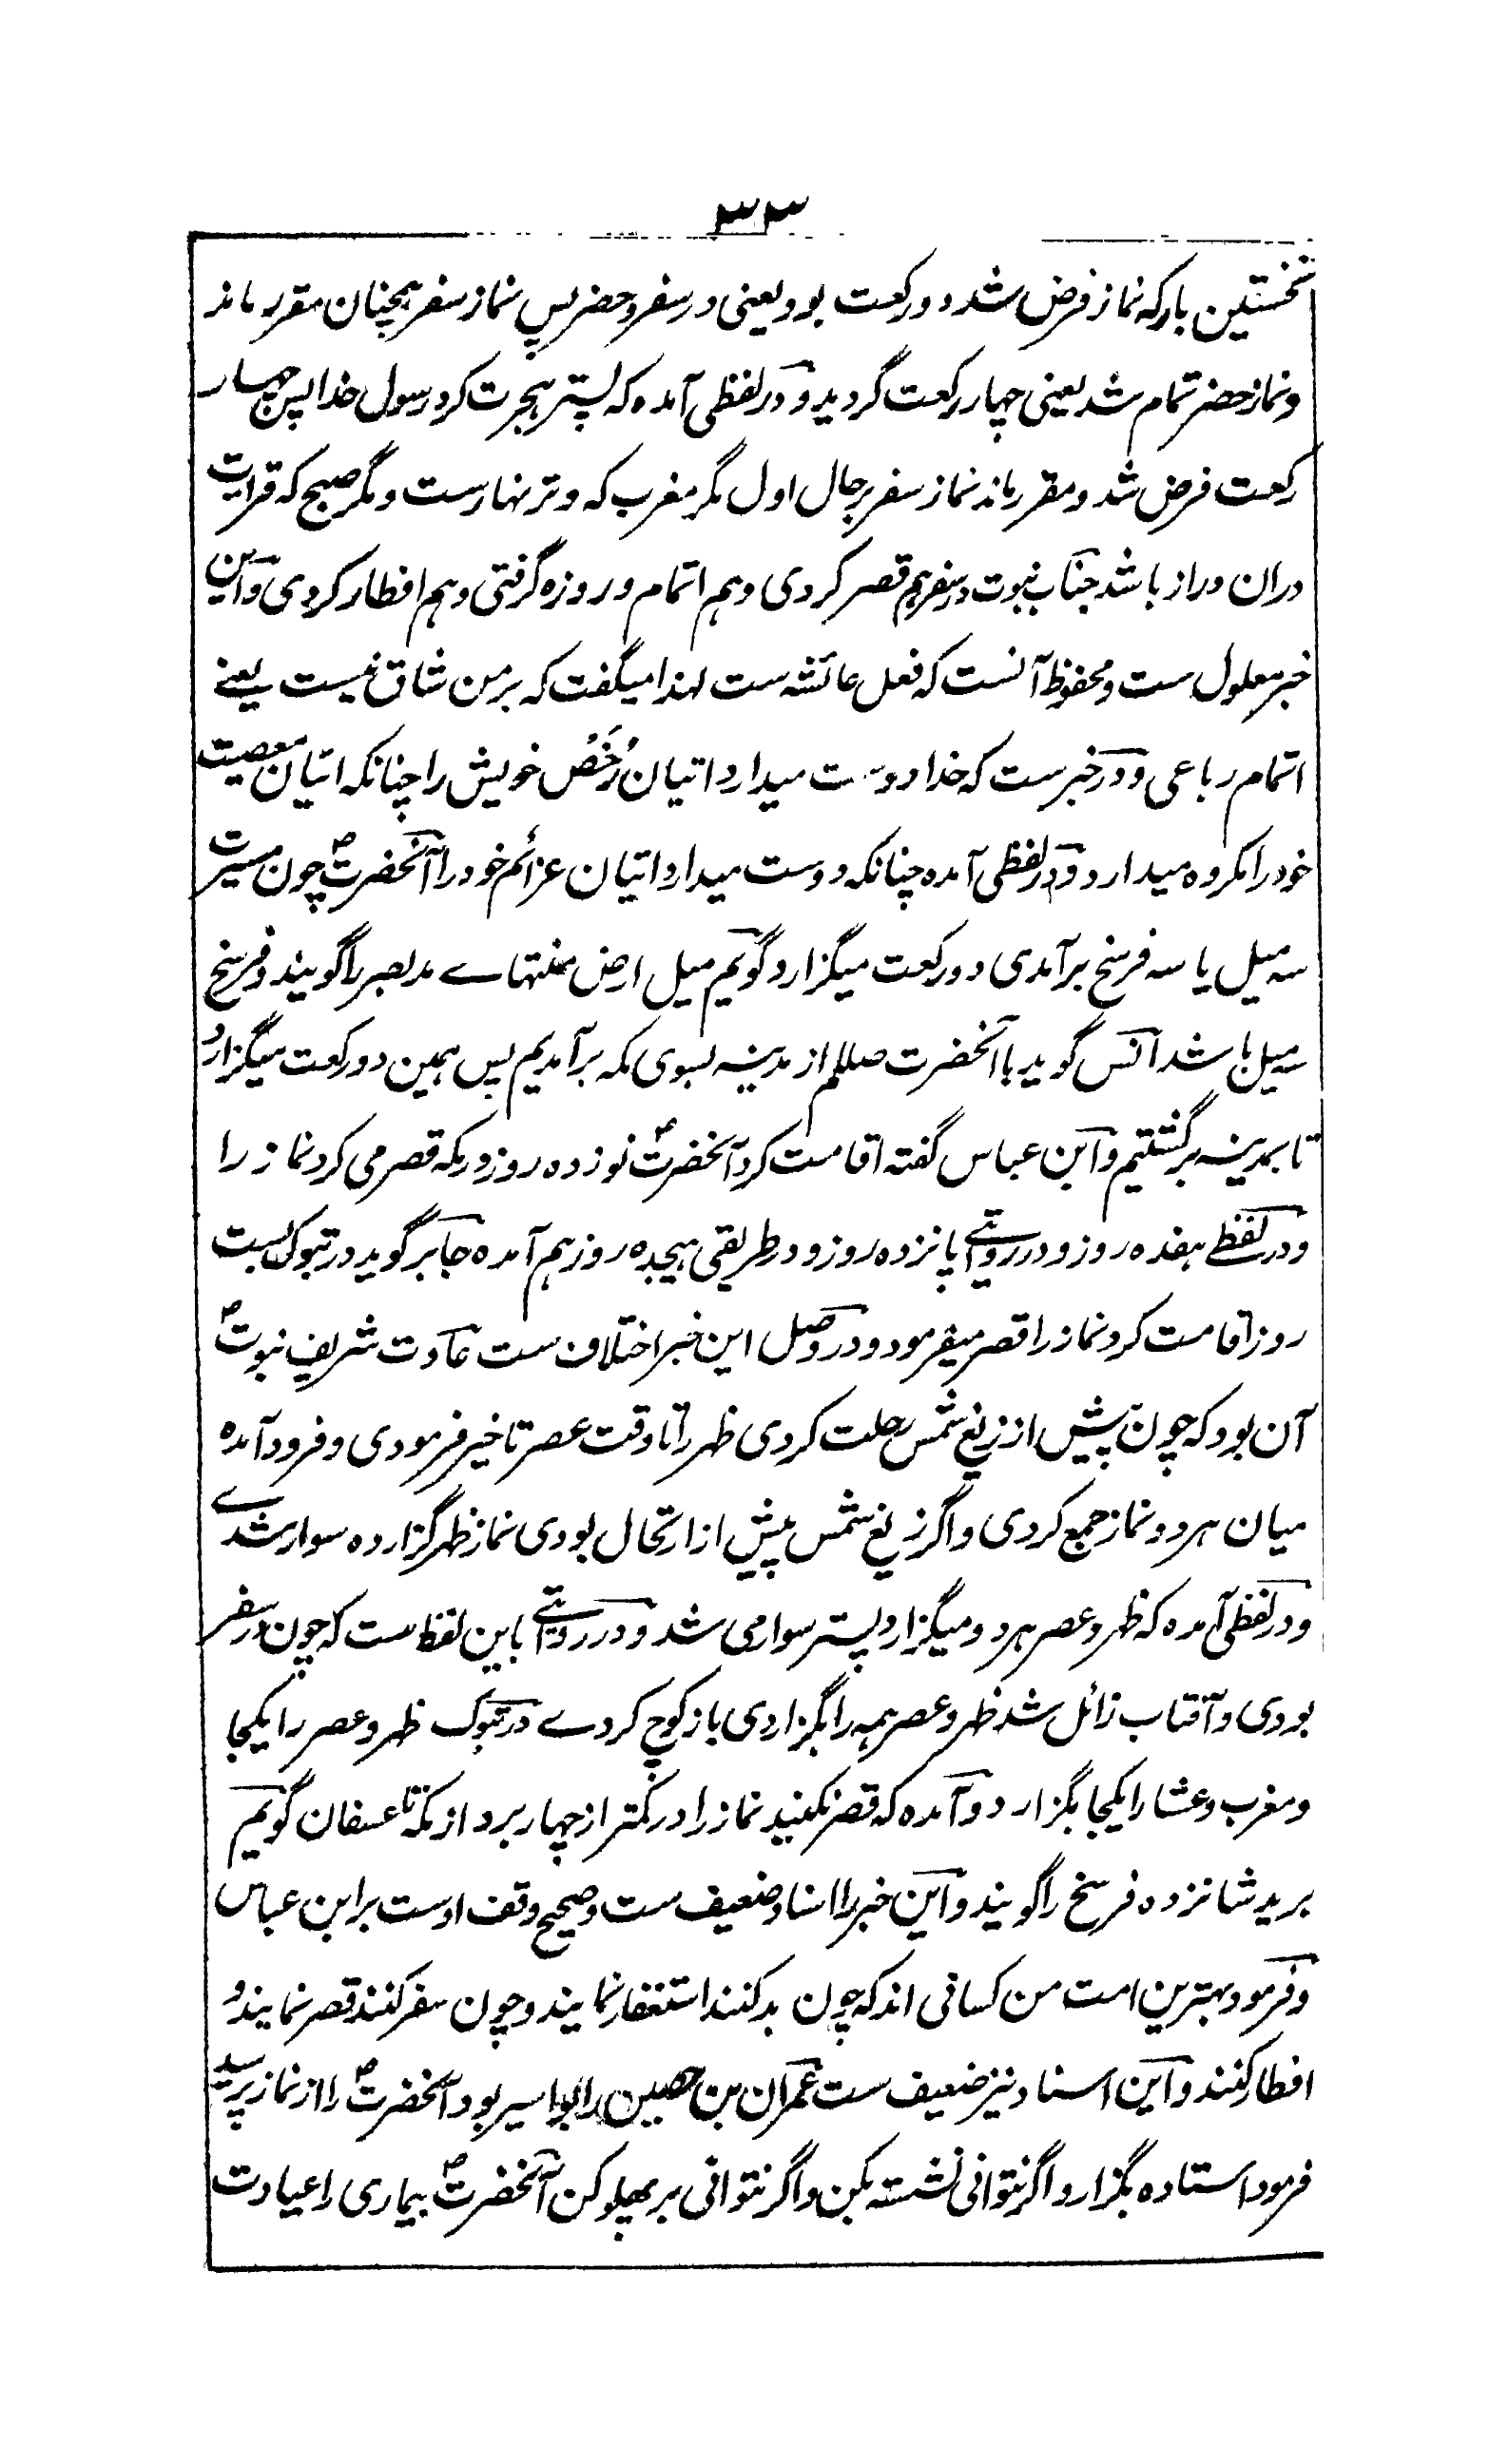 ۳۳
نخستین بار که نماز فرض شد دو رکعت بود یعنی در سفر و حضر پس نماز سفر همچنان مقرر ماند
و نماز حضر تمام شد یعنی چهار رکعت گردید و در لفظی آمده که پستر هجرت کرد رسول خدا پس چهار
رکعت فرض شد و مقرر ماند نماز سفر بر حال اول مگر مغرب که وتر نهارست و مگر صبح که قراءت
دران دراز باشد جناب نبوت در سفر هم قصر کردی و هم اتمام و روزه گرفتی و هم افطار کردی و این
خبر معلول ست و محفوظ آنست که فعل عائشه ست لهذا میگفت که بر من شاق نیست یعنے
اتمام رباعی و در خبرست که خدا دوست میدارد اتیان رُخَصُ خویش را چنانکه اتیان معصیت
خود را مکروه میدارد و در لفظی آمده چنانکه دوست میدارد اتیان عزائم خود را آنحضرتؐ چون مسیرت
سه میل یا سه فرسخ برآمدی دو رکعت میگزارد گویم میل ارض منتهاے مد بصر را گویند و فرسخ
سه میل باشد انس گوید با آنحضرت صللم از مدینه بسوی مکه برآمدیم پس همین دو رکعت میگزارد
تا بمدینه برگشتیم و ابن عباس گفته اقامت کرد آنحضرتؐ نوزده روز و بمکه قصر می کرد نماز را
و در لفظے هفده روز و در روایتے پانزده روز و در طریقی هیجده روز هم آمده جابر گوید در تبوک بست
روز اقامت کرد نماز را قصر میفرمود و در وصل این خبر اختلاف ست عادت شریف نبوتؐ
آن بود که چون پیش از زیغ شمس رحلت کردی ظهر را تا وقت عصر تاخیر فرمودی و فرود آمده
میان هر دو نماز جمع کردی و اگر زیغ شمس پیش از ارتحال بودی نماز ظهر گزارده سوار شدے
و در لفظی آمده که ظهر و عصر هر دو میگزارد پستر سوار می شد و در روایتے باین لفظ ست که چون در سفر
بودی و آفتاب زائل شد ظهر و عصر همه را بگزاردی باز کوچ کردے در تبوک ظهر و عصر را یکجا
و مغرب و عشا را یکجا بگزارد و آمده که قصر نکنید نماز را در کمتر از چهار برد از مکه تا عسفان گویم
برید شانزده فرسخ را گویند و این خبر را اسناد ضعیف ست و صحیح وقف اوست بر ابن عباس
و فرمود بهترین امت من کسانی اند که چون بد کنند استغفار نمایند و چون سفر کنند قصر نمایند و
افطار کنند و این اسناد نیز ضعیف ست عمران بن حصین را بواسیر بود آنحضرتؐ را از نماز پرسید
فرمود استاده بگزار و اگر نتوانی نشسته بکن و اگر نتوانی بر پهلو کن آنحضرتؐ بیماری را عیادت